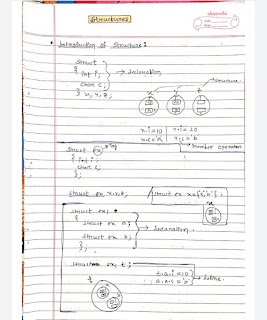 Structures
Introduction of Structure:
struct
{ int i; → Declaration
char c;
} x, y, z;
x y z → structure
x.i=10 y.i=20
x.c='a' y.c='b'
→ member operation
struct ex → tag
{ int i;
char c;
};
struct ex x,y,z; struct ex x={2,'b'};
x
struct ex1
{
struct ex a; → Declaration
struct ex b;
};
struct ex1 t;
t t.a.i=10
→ Define